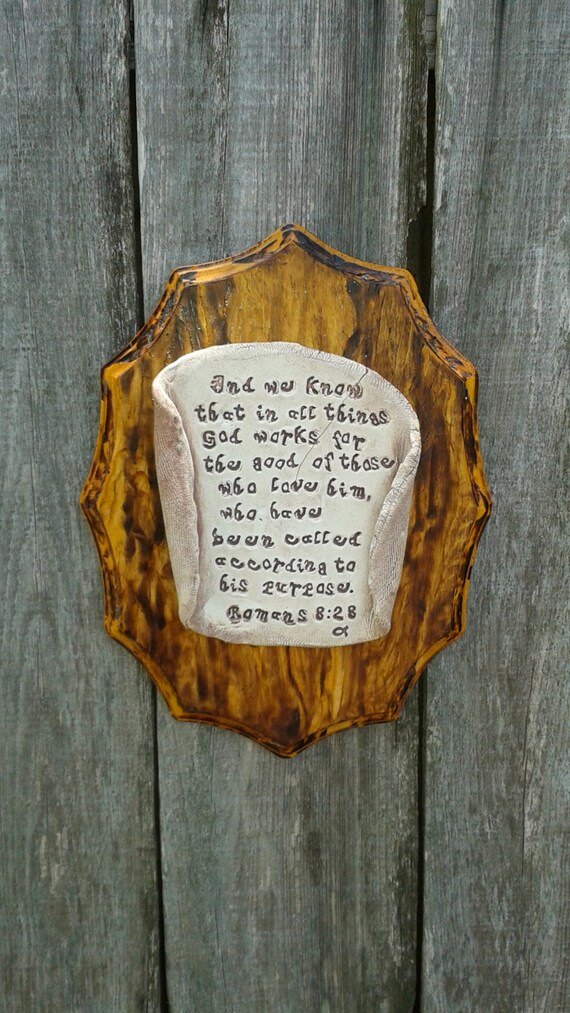 And we know
that in all things
God works for
the good of those
who love him,
who have
been called
according to
his purpose.
Romans 8:28